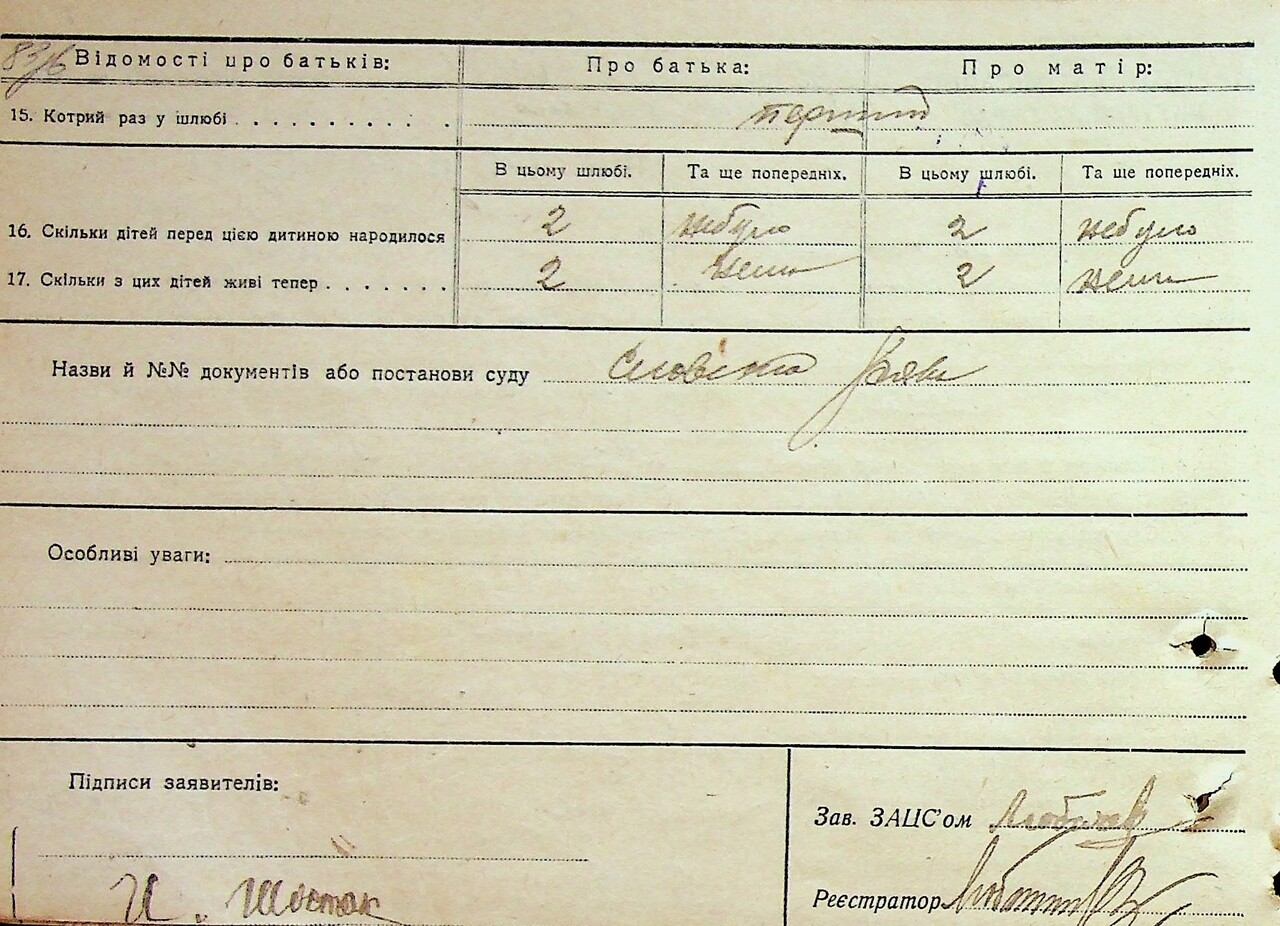 83/6 Відомості про батьків: Про батька: Про матір:
15. Котрий раз у шлюбі . . . . . . . . . . . перший
В цьому шлюбі. Та ще попередніх. В цьому шлюбі. Та ще попередніх.
16. Скільки дітей перед цією дитиною народилося 2 небуло 2 небуло
17. Скільки з цих дітей живі тепер . . . . . . . 2 нема 2 нема
Назви й №№ документів або постанови суду
Особливі уваги:
Підписи заявителів:
Зав. ЗАЦС'ом
И. Шостак
Реєстратор